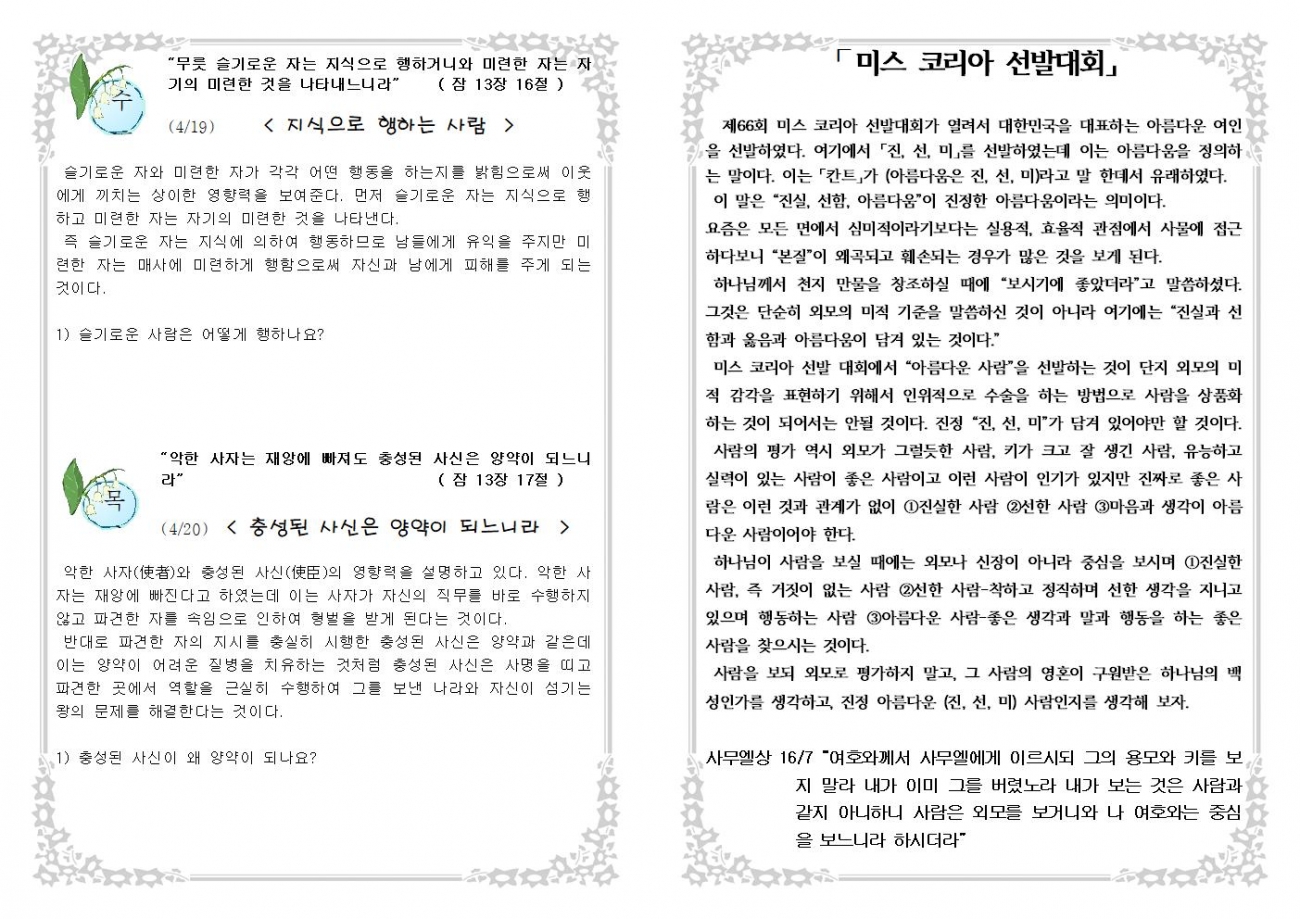 수
"무릇 슬기로운 자는 지식으로 행하거니와 미련한 자는 자
기의 미련한 것을 나타내느니라" ( 잠 13장 16절 )
(4/19) < 지식으로 행하는 사람 >
슬기로운 자와 미련한 자가 각각 어떤 행동을 하는지를 밝힘으로써 이웃
에게 끼치는 상이한 영향력을 보여준다. 먼저 슬기로운 자는 지식으로 행
하고 미련한 자는 자기의 미련한 것을 나타낸다.
즉 슬기로운 자는 지식에 의하여 행동하므로 남들에게 유익을 주지만 미
련한 자는 매사에 미련하게 행함으로써 자신과 남에게 피해를 주게 되는
것이다.
1) 슬기로운 사람은 어떻게 행하나요?
목
"악한 사자는 재앙에 빠져도 충성된 사신은 양약이 되느니
라" ( 잠 13장 17절 )
(4/20) < 충성된 사신은 양약이 되느니라 >
악한 사자(使者)와 충성된 사신(使臣)의 영향력을 설명하고 있다. 악한 사
자는 재앙에 빠진다고 하였는데 이는 사자가 자신의 직무를 바로 수행하지
않고 파견한 자를 속임으로 인하여 형벌을 받게 된다는 것이다.
반대로 파견한 자의 지시를 충실히 시행한 충성된 사신은 양약과 같은데
이는 양약이 어려운 질병을 치유하는 것처럼 충성된 사신은 사명을 띠고
파견한 곳에서 역할을 근실히 수행하여 그를 보낸 나라와 자신이 섬기는
왕의 문제를 해결한다는 것이다.
1) 충성된 사신이 왜 양약이 되나요?
「미스 코리아 선발대회」
제66회 미스 코리아 선발대회가 열려서 대한민국을 대표하는 아름다운 여인
을 선발하였다. 여기에서 「진, 선, 미」를 선발하였는데 이는 아름다움을 정의하
는 말이다. 이는 「칸트」가 (아름다움은 진, 선, 미)라고 말 한데서 유래하였다.
이 말은 "진실, 선함, 아름다움"이 진정한 아름다움이라는 의미이다.
요즘은 모든 면에서 심미적이라기보다는 실용적, 효율적 관점에서 사물에 접근
하다보니 "본질"이 왜곡되고 훼손되는 경우가 많은 것을 보게 된다.
하나님께서 천지 만물을 창조하실 때에 "보시기에 좋았더라"고 말씀하셨다.
그것은 단순히 외모의 미적 기준을 말씀하신 것이 아니라 여기에는 "진실과 선
함과 옳음과 아름다움이 담겨 있는 것이다."
미스 코리아 선발 대회에서 "아름다운 사람"을 선발하는 것이 단지 외모의 미
적 감각을 표현하기 위해서 인위적으로 수술을 하는 방법으로 사람을 상품화
하는 것이 되어서는 안될 것이다. 진정 "진, 선, 미"가 담겨 있어야만 할 것이다.
사람의 평가 역시 외모가 그럴듯한 사람, 키가 크고 잘 생긴 사람, 유능하고
실력이 있는 사람이 좋은 사람이고 이런 사람이 인기가 있지만 진짜로 좋은 사
람은 이런 것과 관계가 없이 ①진실한 사람 ②선한 사람 ③마음과 생각이 아름
다운 사람이어야 한다.
하나님이 사람을 보실 때에는 외모나 신장이 아니라 중심을 보시며 ①진실한
사람, 즉 거짓이 없는 사람 ②선한 사람-착하고 정직하며 선한 생각을 지니고
있으며 행동하는 사람 ③아름다운 사람-좋은 생각과 말과 행동을 하는 좋은
사람을 찾으시는 것이다.
사람을 보되 외모로 평가하지 말고, 그 사람의 영혼이 구원받은 하나님의 백
성인가를 생각하고, 진정 아름다운 (진, 선, 미) 사람인지를 생각해 보자.
사무엘상 16/7 "여호와께서 사무엘에게 이르시되 그의 용모와 키를 보
지 말라 내가 이미 그를 버렸노라 내가 보는 것은 사람과
같지 아니하니 사람은 외모를 보거니와 나 여호와는 중심
을 보느니라 하시더라"